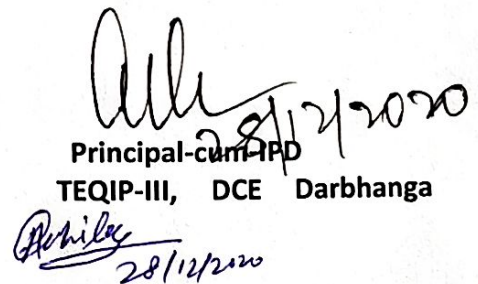 28/12/2020
Principal-cum-IPD
TEQIP-III, DCE Darbhanga
28/12/2020